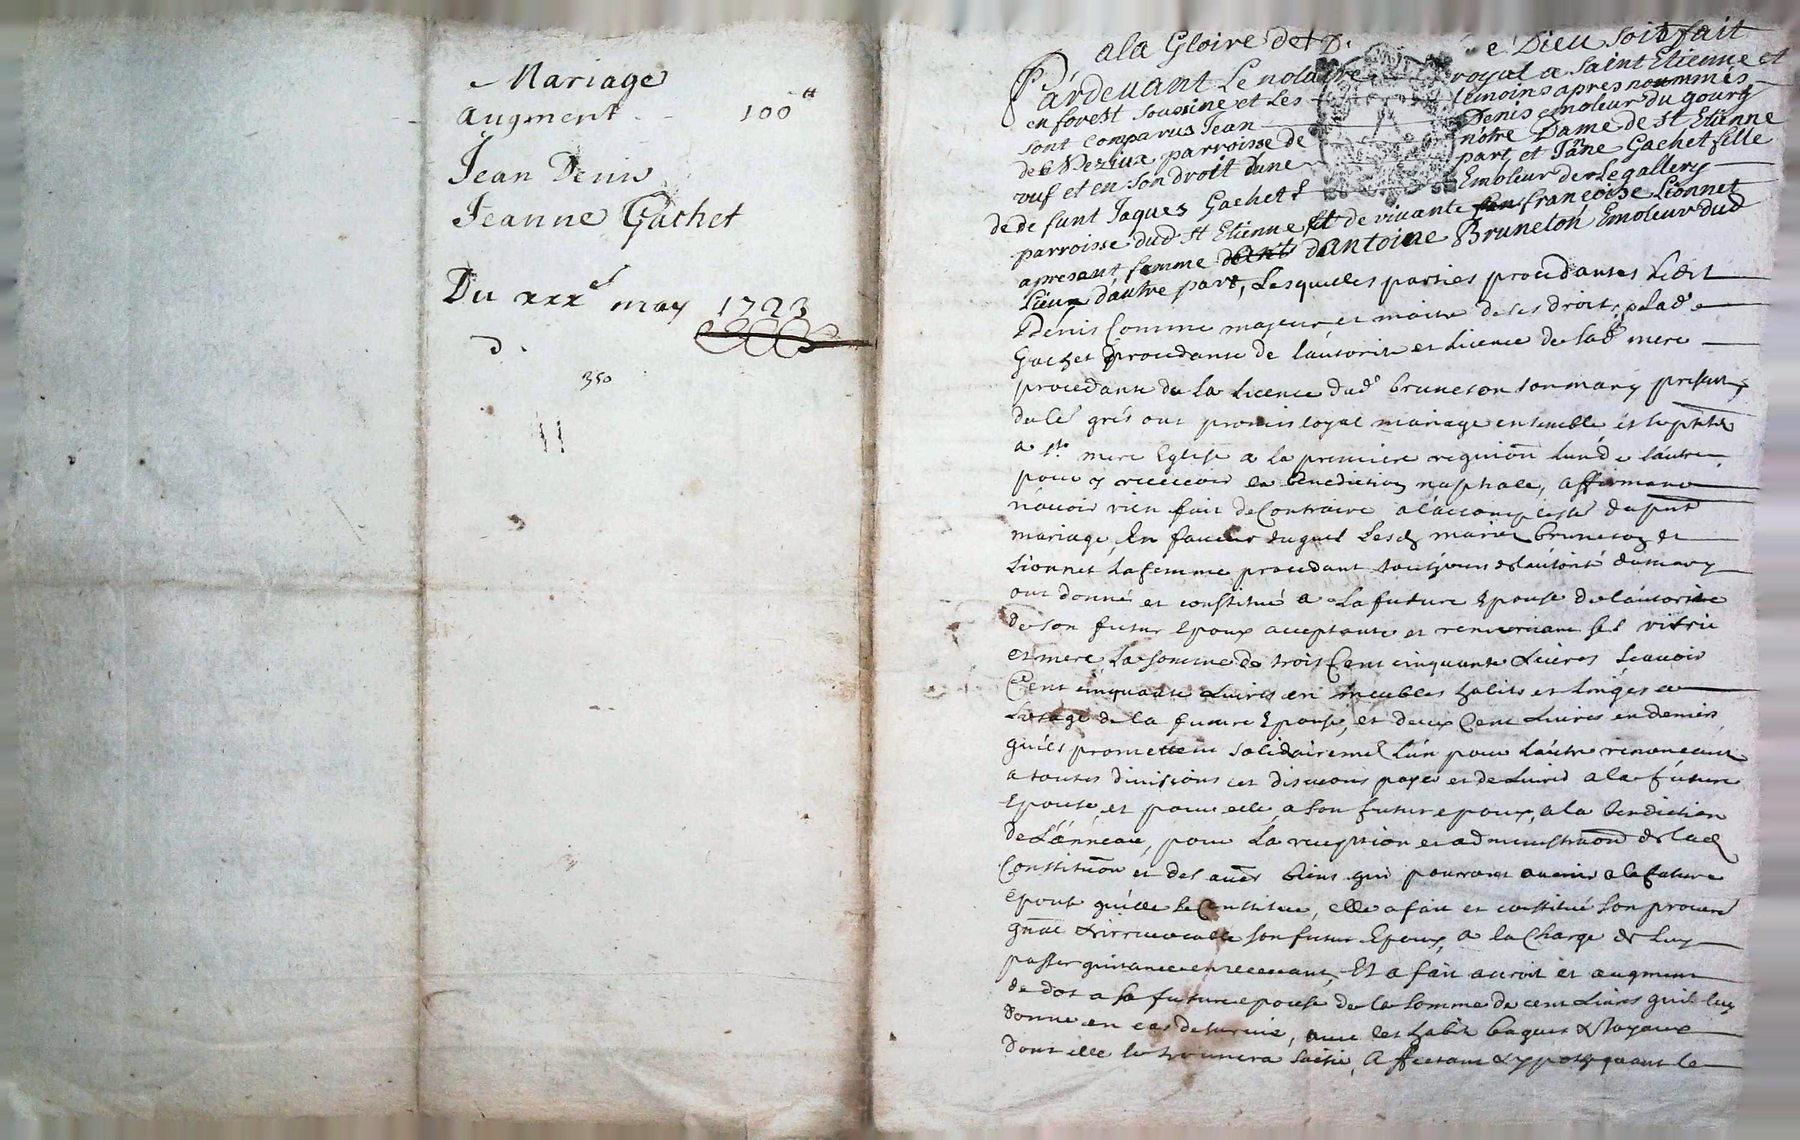 Mariage
augment 100ᵗᵗ
Jean Denis
Jeanne Gachet
Du xxxᵉ may 1723
350
a la Gloire de D. e Dieu soit fait
Pardevant Le notaire royal a Saint Etienne et
en forest sousine et Les temoins apres nommés
sont comparus Jean Denis emoleur du gourg
parroisse de notre Dame de St Etienne
et en son droit dune part et Jāne Gachet fille
de defunt Jaques Gachet Emoleur de
parroisse dud St Etienne et de vivante francoise Lionnet
apresant femme dantoine Bruneton Emoleur dud
Lieux dautre part, Lesquelles parties procedantes Ledit
Denis Comme majeur et maitre de ses droits, Ladᵉ
Gachet procedante de lautorité et Licence de sadᵉ mere
procedante de la Licence dudᵗ bruneton son mary present,
de le gré ont promis loyal mariage ensemble et se
a sᵗᵉ mere Eglise a la premiere requiōn lun de lautre
pour y recevoir la benediction nuptiale, affirmant
navoir rien fait de Contraire a du pnt
mariage, En faveur duquel Lesd mariez bruneton et
Lionnet la femme procedant toujours de lautorité dumary
ont donné et constitué a la future Epouse de lautorité
de son futur Epoux acceptante et remerciant
et mere la somme de trois Cent cinquante Livres scavoir
Cent cinquante Livres en meubles habits et linges a
Lusage de la future Epouse, et deux Cent Livres en deniers
quils promettent solidairemᵗ lun pour lautre renoncant
a toutes divisions et discutions payer et delivrer a la future
Epouse, et pour elle a son futur epoux, a la benediction
de Lanneau, pour La reception et administraōn de lad
Constituōn et des aues biens qui pourront avenir a la future
Epouse quelle se Constitue, elle a fait et constitué son procur
gnal et irrevocable son futur Epoux, a la Charge de Luy
passer quitance en recevant, Et a fait acroit et augment
de dot a sa future epouse de la somme de cent Livres quil luy
donne en cas de survie, avec les habits bagues et Joyaux
dont elle se trouvera saisie, Affectant et ypotequant le